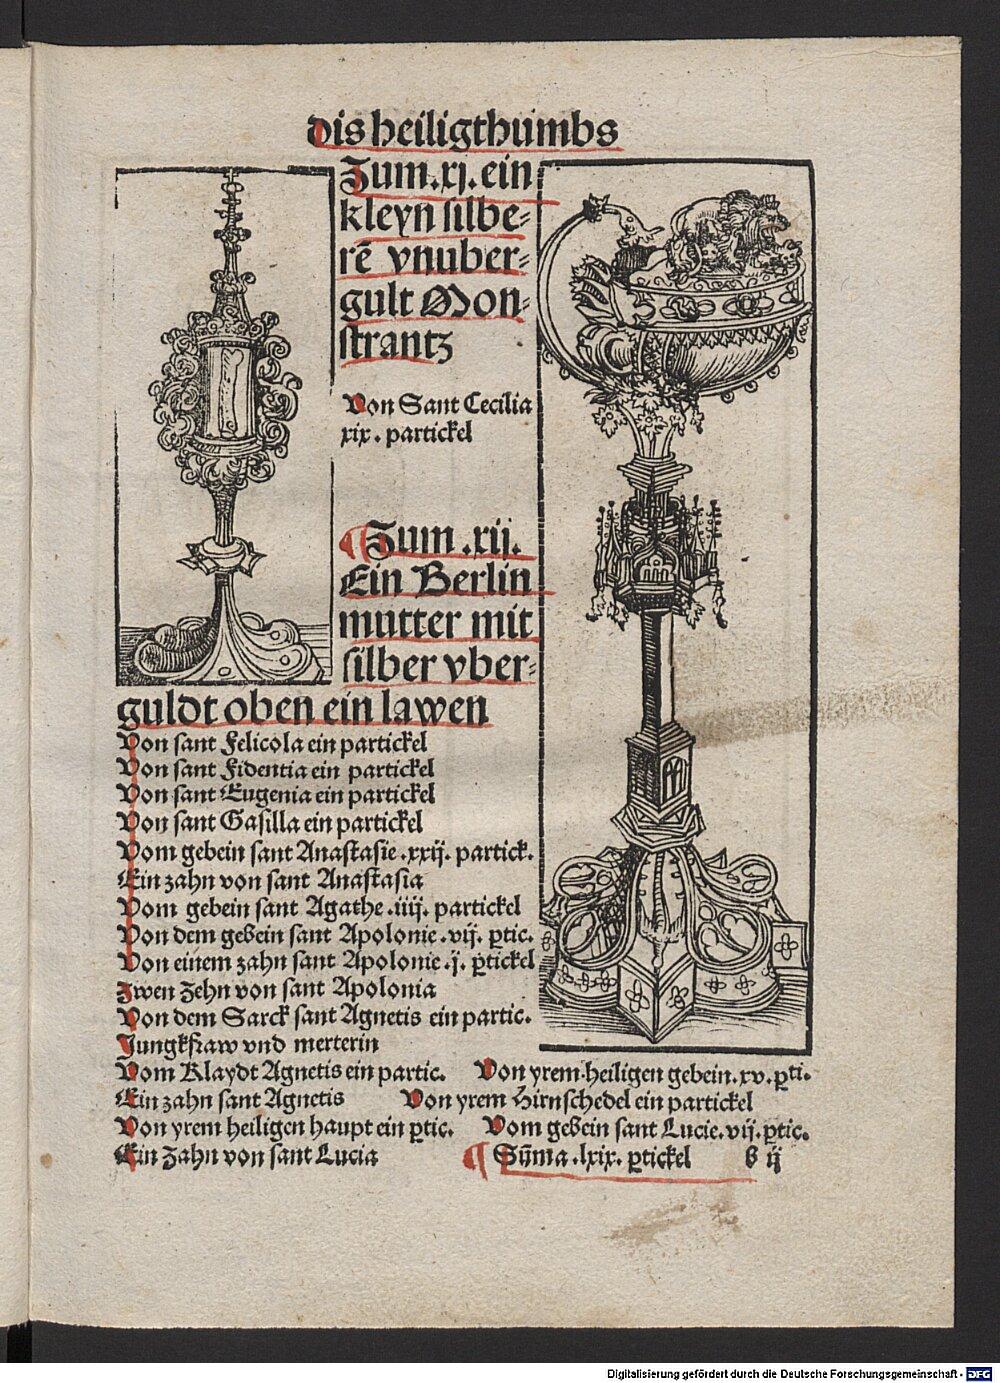 dis heiligthumbs
Zum .xj. ein
kleyn silbe-
rē vnuber-
gult Mon-
strantz
Von Sant Cecilia
xix. partickel
¶ Zum .xij.
Ein Berlin
mutter mit
silber vber-
guldt oben ein lawen
Von sant Felicola ein partickel
Von sant Fidentia ein partickel
Von sant Eugenia ein partickel
Von sant Gasilla ein partickel
Vom gebein sant Anastasie .xxij. partick.
Ein zahn von sant Anastasia
Vom gebein sant Agathe .iiij. partickel
Von dem gebein sant Apolonie .vij. ꝑtic.
Von einem zahn sant Apolonie .j. ꝑtickel
Zwen Zehn von sant Apolonia
Von dem Sarck sant Agnetis ein partic.
Jungkfraw vnd merterin
Vom Klaydt Agnetis ein partic. Von yrem heiligen gebein .xv. ꝑti.
Ein zahn sant Agnetis Von yrem Hirnschedel ein partickel
Von yrem heiligen haupt ein ꝑtic. Vom gebein sant Lucie .vij. ꝑtic.
Ein Zahn von sant Lucia ¶ Sūma .lxix. ꝑtickel b ij
Digitalisierung gefördert durch die Deutsche Forschungsgemeinschaft - DFG